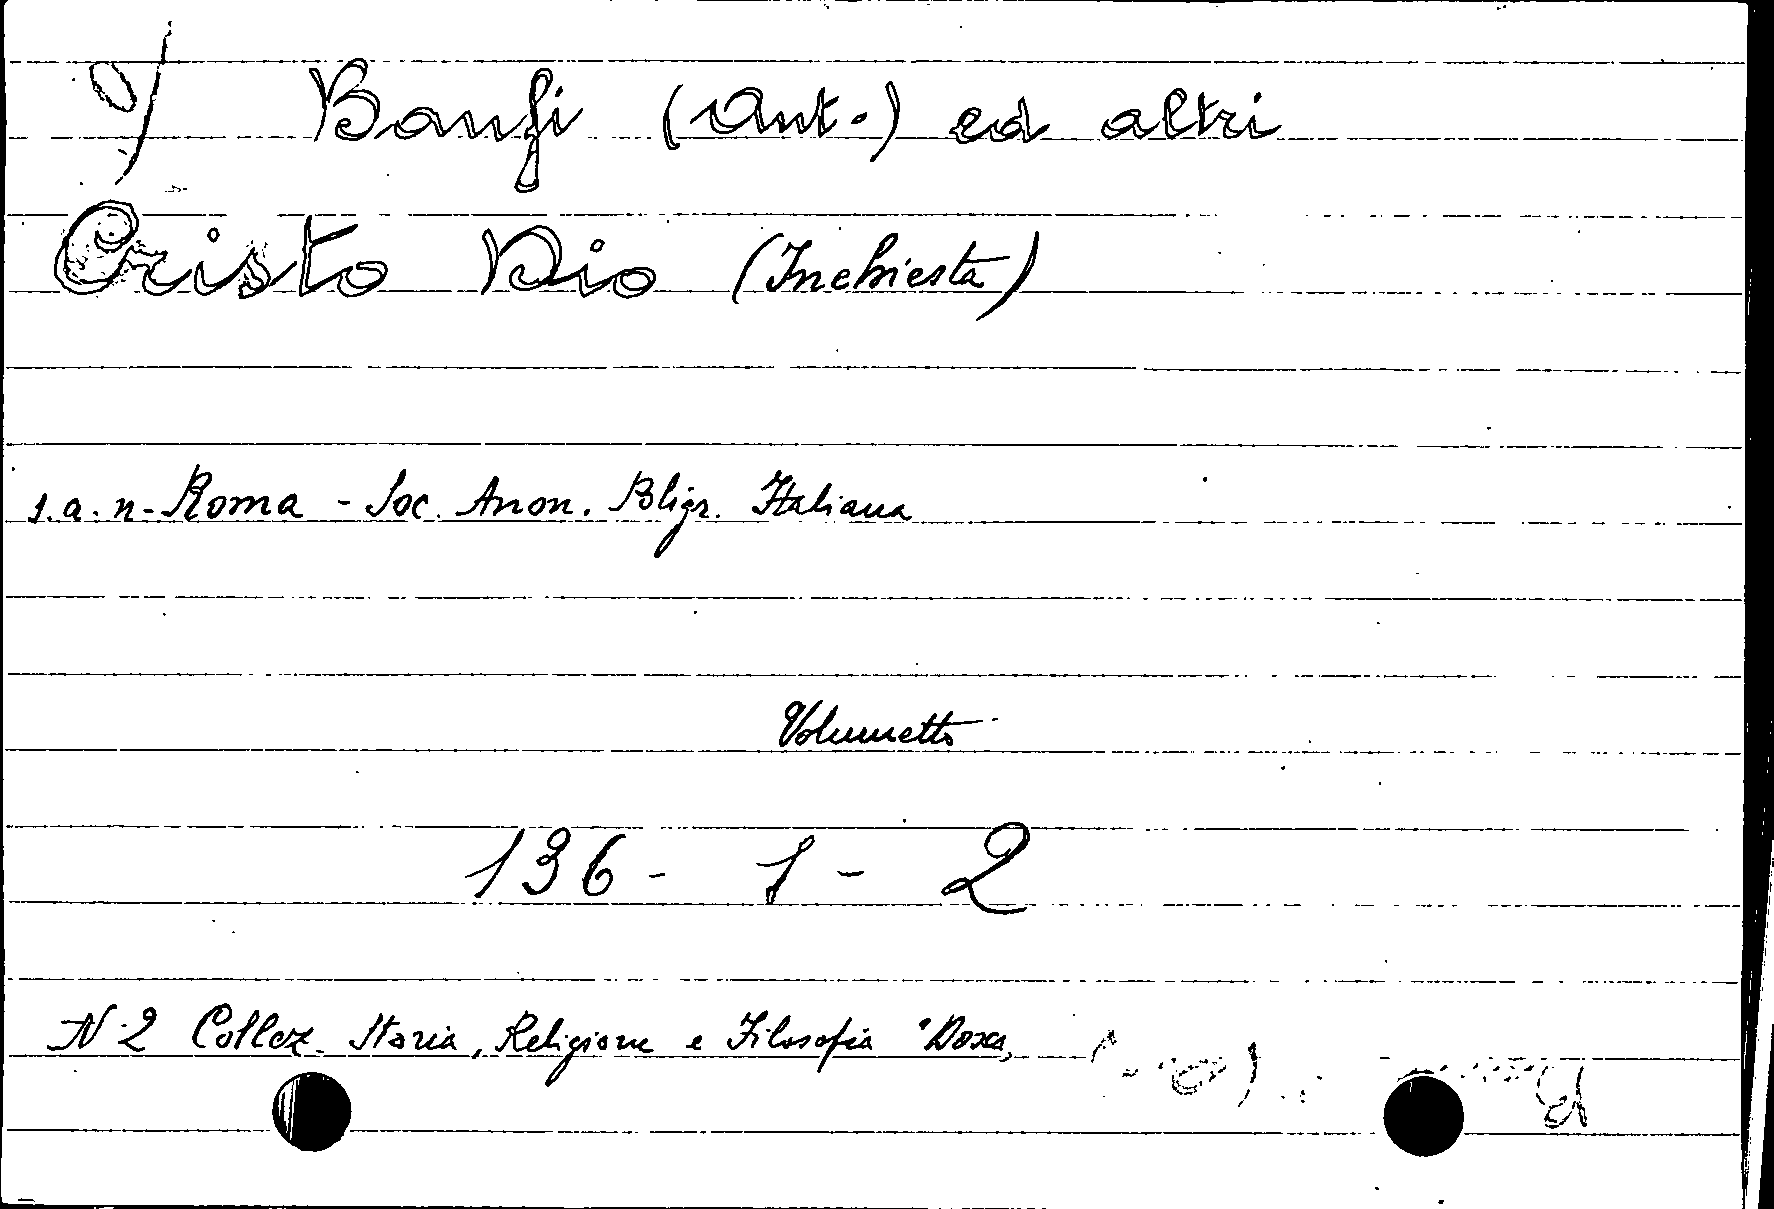 Banfi (Ant.) ed altri
Cristo Dio (Inchiesta)
s.a.n - Roma - Soc. Anon. Poligr. Italiana
Volumetto
136 - 1 - 2
N 2 Collez. Storia, Religione e Filosofia "Doxa"